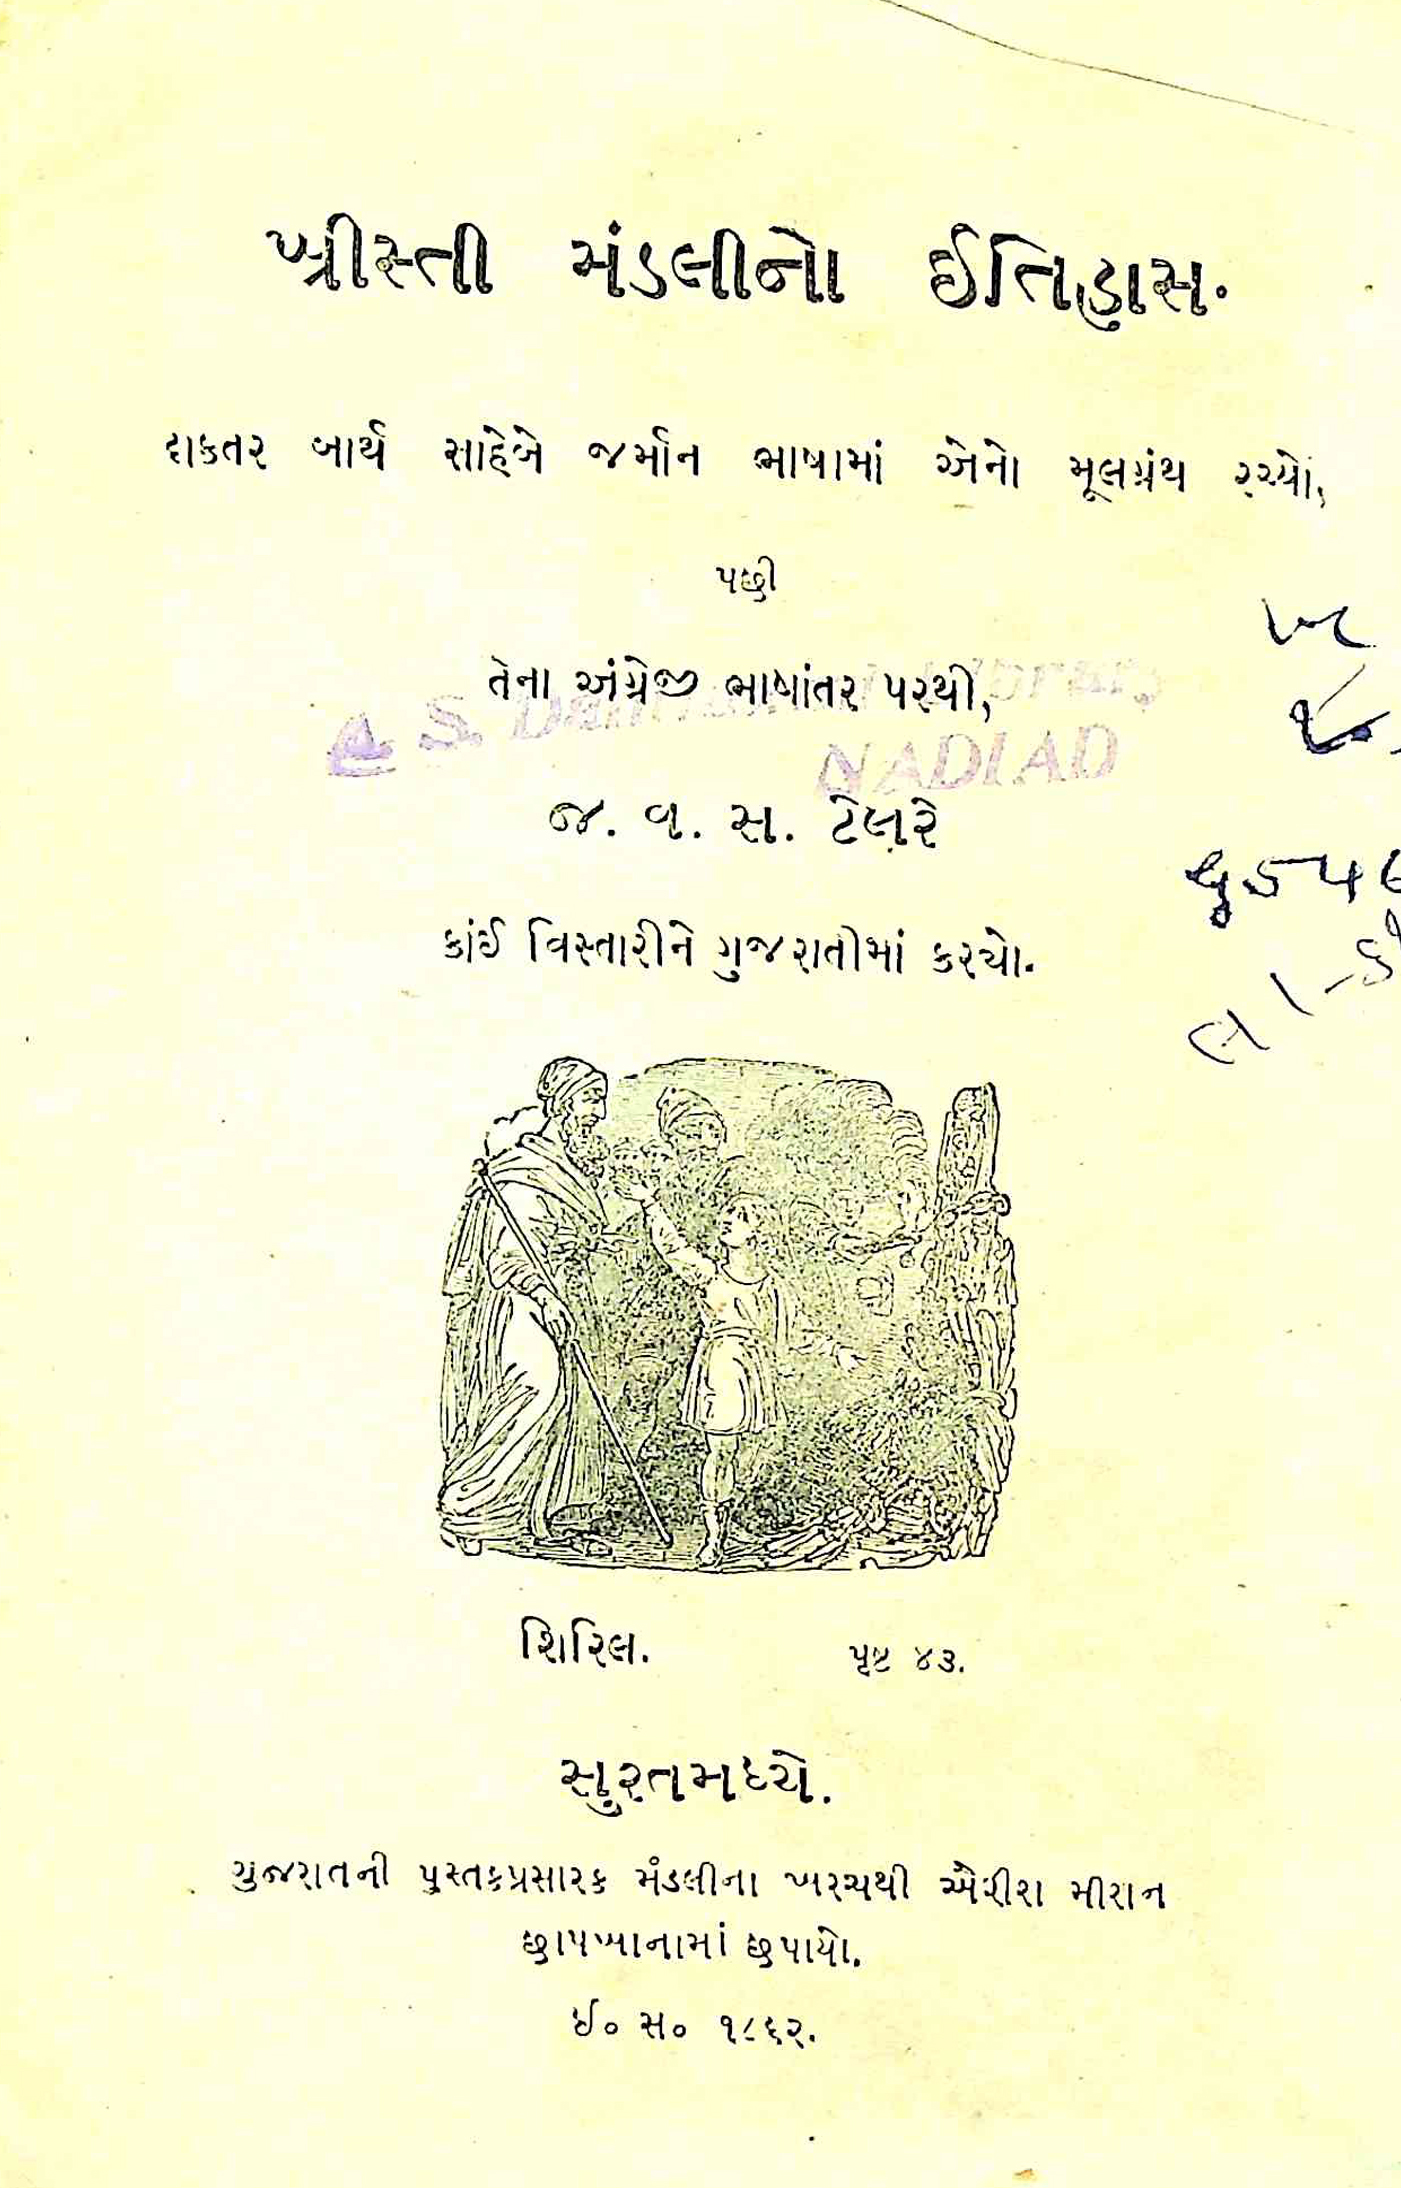 ખ્રીસ્તી મંડલીનો ઈતિહાસ.
દાકતર બાર્થ સાહેબે જર્માન ભાષામાં એનો મૂલગ્રંથ રચ્યો,
પછી
તેના અંગ્રેજી ભાષાંતર પરથી,
NADIAD
જ. વ. સ. ટેલરે
કાંઈ વિસ્તારીને ગુજરાતીમાં કરયો.
શિરિલ. પૃષ્ટ ૪૩.
સુરતમધ્યે.
ગુજરાતની પુસ્તકપ્રસારક મંડલીના ખરચથી ઐરીશ મીશન
છાપખાનામાં છપાયો.
ઈ૦ સ૦ ૧૮૬૨.